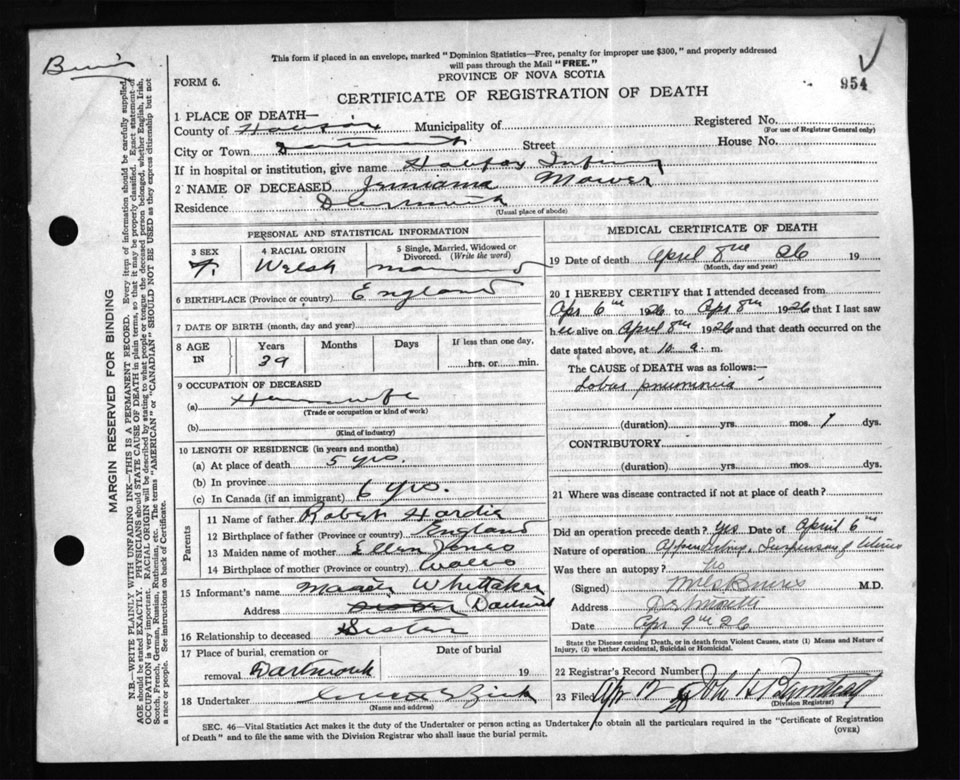 This form if placed in an envelope, marked "Dominion Statistics—Free, penalty for improper use $300," and properly addressed
will pass through the Mail "FREE."
FORM 6.
PROVINCE OF NOVA SCOTIA
954
CERTIFICATE OF REGISTRATION OF DEATH
1 PLACE OF DEATH—
County of Halifax Municipality of Registered No.
(For use of Registrar General only)
City or Town Dartmouth Street House No.
If in hospital or institution, give name Halifax Infirmary
2 NAME OF DECEASED Mower
Residence Dartmouth
(Usual place of abode)
PERSONAL AND STATISTICAL INFORMATION
3 SEX 4 RACIAL ORIGIN 5 Single, Married, Widowed or Divorced. (Write the word)
F. Welsh Married
6 BIRTHPLACE (Province or country) England
7 DATE OF BIRTH (month, day and year)
8 AGE IN Years Months Days If less than one day,
39 hrs. or min.
9 OCCUPATION OF DECEASED
(a) Housewife
(Trade or occupation or kind of work)
(b)
(Kind of industry)
10 LENGTH OF RESIDENCE (in years and months)
(a) At place of death 5 yrs.
(b) In province
(c) In Canada (if an immigrant) 6 yrs.
Parents
11 Name of father Robert Hardie
12 Birthplace of father (Province or country) England
13 Maiden name of mother Ellen Jones
14 Birthplace of mother (Province or country) Wales
15 Informant's name Whittaker
Address Sister Dartmouth
16 Relationship to deceased Sister
17 Place of burial, cremation or removal Dartmouth Date of burial 19
18 Undertaker Zink
(Name and address)
MEDICAL CERTIFICATE OF DEATH
19 Date of death April 8th 26 19
(Month, day and year)
20 I HEREBY CERTIFY that I attended deceased from
Apr 6th 1926 to Apr 8th 1926 that I last saw
her alive on April 8th 1926 and that death occurred on the
date stated above, at 10 a. m.
The CAUSE OF DEATH was as follows:—
Lobar pneumonia
(duration) yrs. mos. 1 dys.
CONTRIBUTORY
(duration) yrs. mos. dys.
21 Where was disease contracted if not at place of death?
Did an operation precede death? yes Date of April 6th
Nature of operation Suspension of Uterus
Was there an autopsy? No
(Signed) M.D.
Address Dartmouth
Date Apr 9th 26
State the Disease causing Death, or in death from Violent Causes, state (1) Means and Nature of
Injury, (2) whether Accidental, Suicidal or Homicidal.
22 Registrar's Record Number
23 Filed Apr 12
(Division Registrar)
SEC. 46—Vital Statistics Act makes it the duty of the Undertaker or person acting as Undertaker to obtain all the particulars required in the "Certificate of Registration
of Death" and to file the same with the Division Registrar who shall issue the burial permit.
(OVER)
MARGIN RESERVED FOR BINDING
N.B.—WRITE PLAINLY WITH UNFADING INK—THIS IS A PERMANENT RECORD. Every item of information should be carefully supplied,
AGE should be stated EXACTLY. PHYSICIANS should STATE CAUSE OF DEATH in plain terms, so that it may be properly classified. Exact statement of
OCCUPATION is very important. RACIAL ORIGIN will be described by stating to what people or tongue the deceased person belonged, whether English, Irish,
Scotch, French, German, Russian, Ruthenian, etc. The terms "AMERICAN" or "CANADIAN" SHOULD NOT BE USED as they express citizenship but not
a race or people. See instructions on back of Certificate.